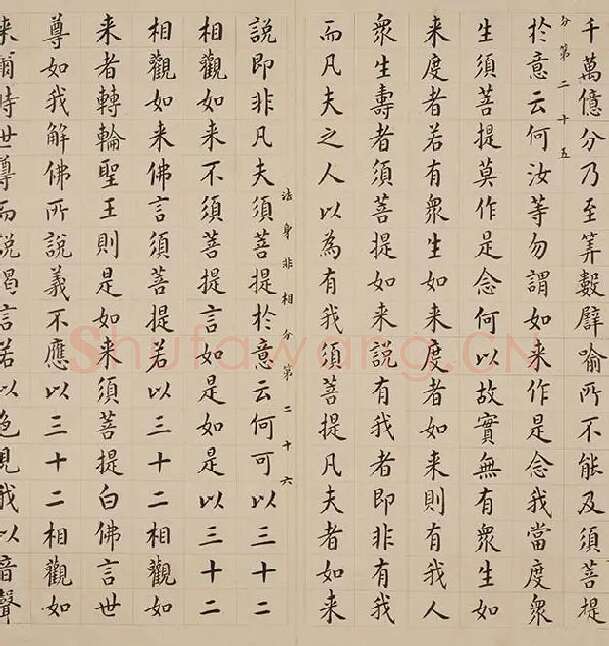 千萬億分乃至筭數譬喻所不能及須菩提
分第二十五
於意云何汝等勿謂如来作是念我當度衆
生須菩提莫作是念何以故實無有衆生如
来度者若有衆生如来度者如来則有我人
衆生壽者須菩提如来說有我者即非有我
而凡夫之人以為有我須菩提凡夫者如来
法身非相分第二十六
說即非凡夫須菩提於意云何可以三十二
相觀如来不須菩提言如是如是以三十二
相觀如来佛言須菩提若以三十二相觀如
来者轉輪聖王則是如来須菩提白佛言世
尊如我解佛所說義不應以三十二相觀如
来爾時世尊而說偈言若以色見我以音聲
Shufawang.CN